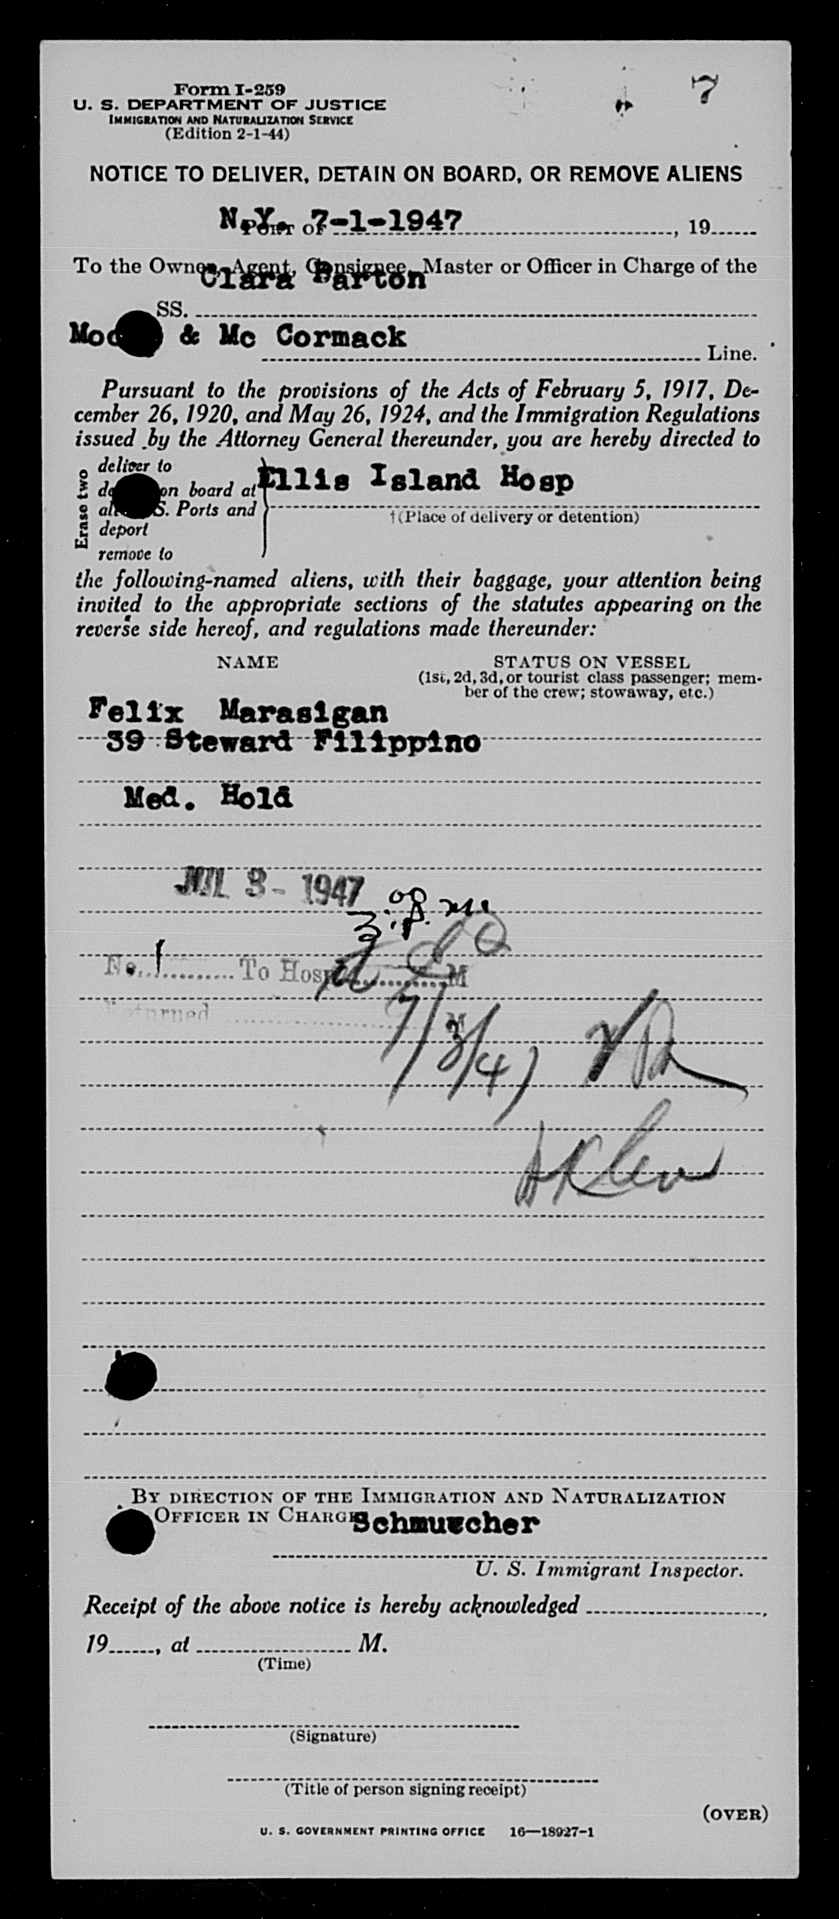 7
Form I-259
U. S. DEPARTMENT OF JUSTICE
IMMIGRATION AND NATURALIZATION SERVICE
(Edition 2-1-44)
NOTICE TO DELIVER, DETAIN ON BOARD, OR REMOVE ALIENS
N.Y. PORT OF 7-1-1947, 19
To the Owner, Agent, Consignee, Master or Officer in Charge of the
Clara Barton
SS.
& Mc Cormack
Line.
Pursuant to the provisions of the Acts of February 5, 1917, De-
cember 26, 1920, and May 26, 1924, and the Immigration Regulations
issued by the Attorney General thereunder, you are hereby directed to
Erase two
deliver to
on board at Ellis Island Hosp
S. Ports and
†(Place of delivery or detention)
deport
remove to
the following-named aliens, with their baggage, your attention being
invited to the appropriate sections of the statutes appearing on the
reverse side hereof, and regulations made thereunder:
NAME STATUS ON VESSEL
(1st, 2d, 3d, or tourist class passenger; mem-
ber of the crew; stowaway, etc.)
Felix Marasigan
39 Steward Filippino
Med. Hold
JUL 3- 1947
No. 1 To Hosp M
Returned M
7/3/47
BY DIRECTION OF THE IMMIGRATION AND NATURALIZATION
OFFICER IN CHARGE
U. S. Immigrant Inspector.
Receipt of the above notice is hereby acknowledged
19, at M.
(Time)
(Signature)
(Title of person signing receipt)
(OVER)
U. S. GOVERNMENT PRINTING OFFICE 16—18927-1